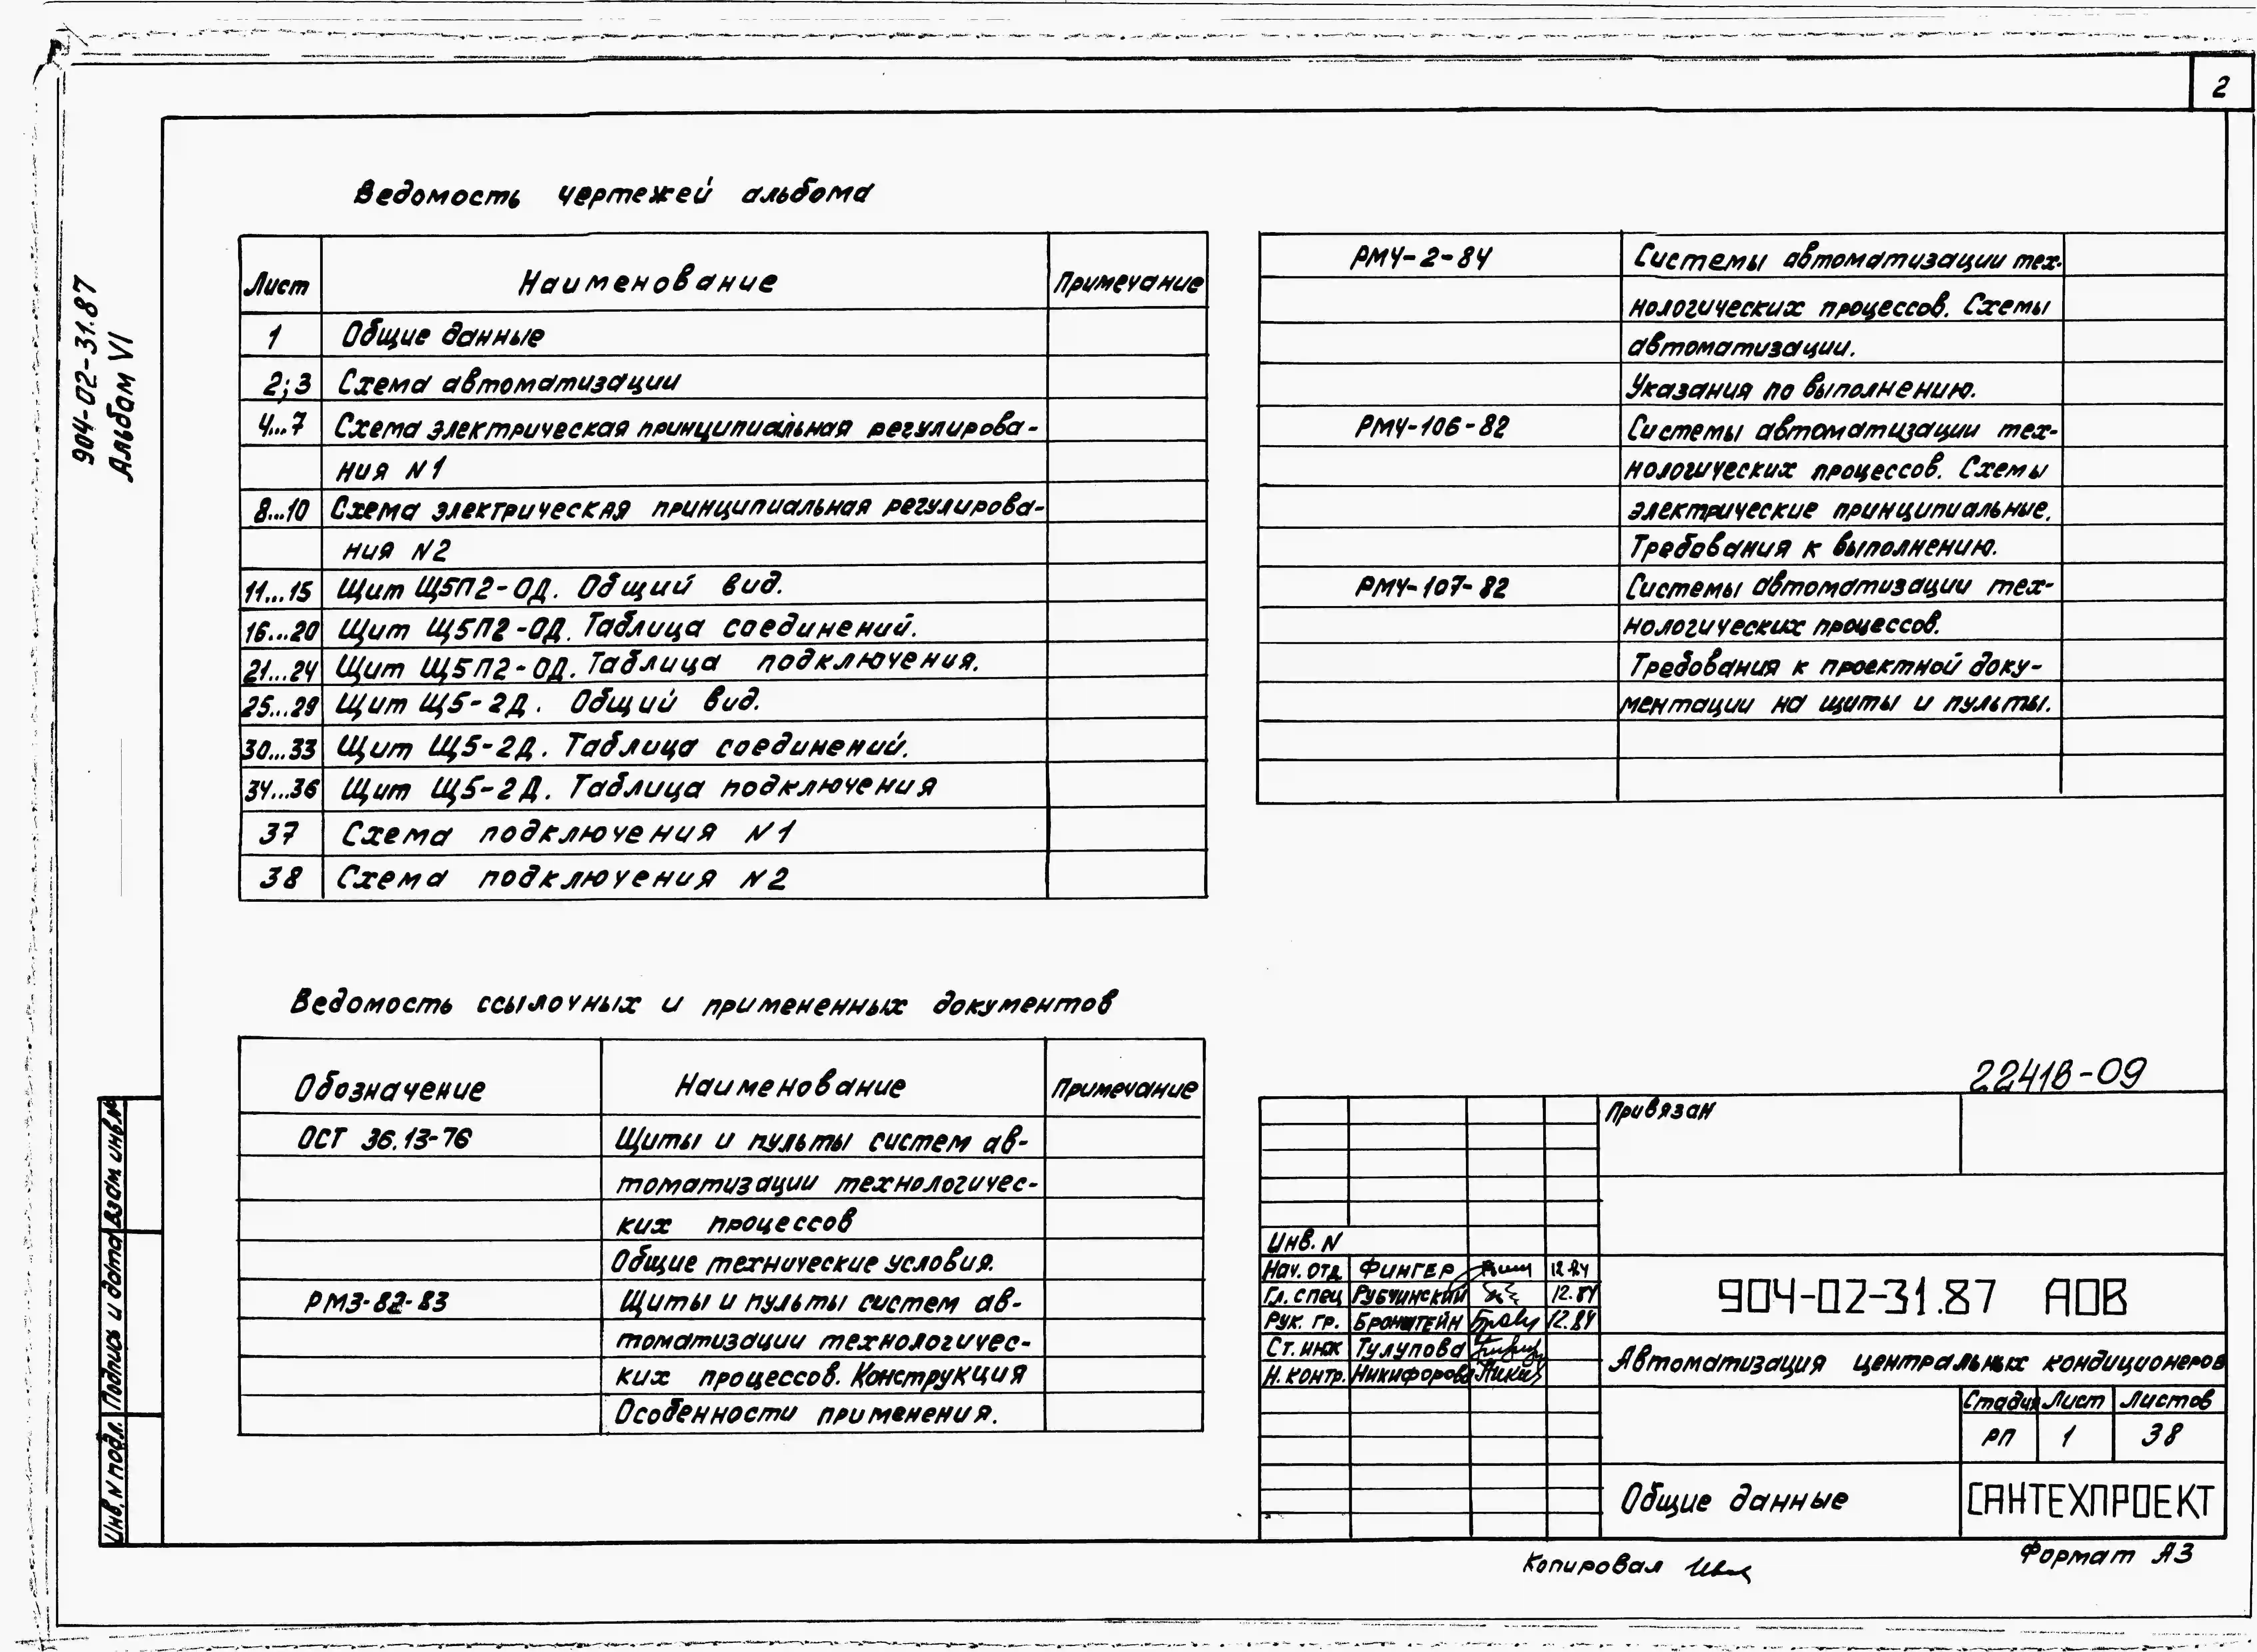 2
904-02-31.87
Альбом VI
Ведомость чертежей альбома
Лист Наименование Примечание
1 Общие данные
2;3 Схема автоматизации
4...7 Схема электрическая принципиальная регулирова-
ния N1
8...10 Схема электрическая принципиальная регулирова-
ния N2
11...15 Щит Щ5П2-ОД. Общий вид.
16...20 Щит Щ5П2-ОД. Таблица соединений.
21...24 Щит Щ5П2-ОД. Таблица подключения.
25...29 Щит Щ5-2Д. Общий вид.
30...33 Щит Щ5-2Д. Таблица соединений.
34...36 Щит Щ5-2Д. Таблица подключения
37 Схема подключения N1
38 Схема подключения N2
Ведомость ссылочных и примененных документов
Обозначение Наименование Примечание
ОСТ 36.13-76 Щиты и пульты систем ав-
томатизации технологичес-
ких процессов
Общие технические условия.
РМ3-82-83 Щиты и пульты систем ав-
томатизации технологичес-
ких процессов. Конструкция
Особенности применения.
РМ4-2-84 Системы автоматизации тех-
нологических процессов. Схемы
автоматизации.
Указания по выполнению.
РМ4-106-82 Системы автоматизации тех-
нологических процессов. Схемы
электрические принципиальные.
Требования к выполнению.
РМ4-107-82 Системы автоматизации тех-
нологических процессов.
Требования к проектной доку-
ментации на щиты и пульты.
22418-09
Привязан
Инв. N
Нач. отд Фингер 12.84
Гл. спец Рубчинский 12.84
Рук. гр. Бронштейн 12.84
Ст. инж Тулупова
Н. контр. Никифорова
904-02-31.87 АОВ
Автоматизация центральных кондиционеров
Стадия Лист Листов
РП 1 38
Общие данные
САНТЕХПРОЕКТ
Копировал
Формат А3
Взам. инв. №
Подпись и дата
Инв. N подл.